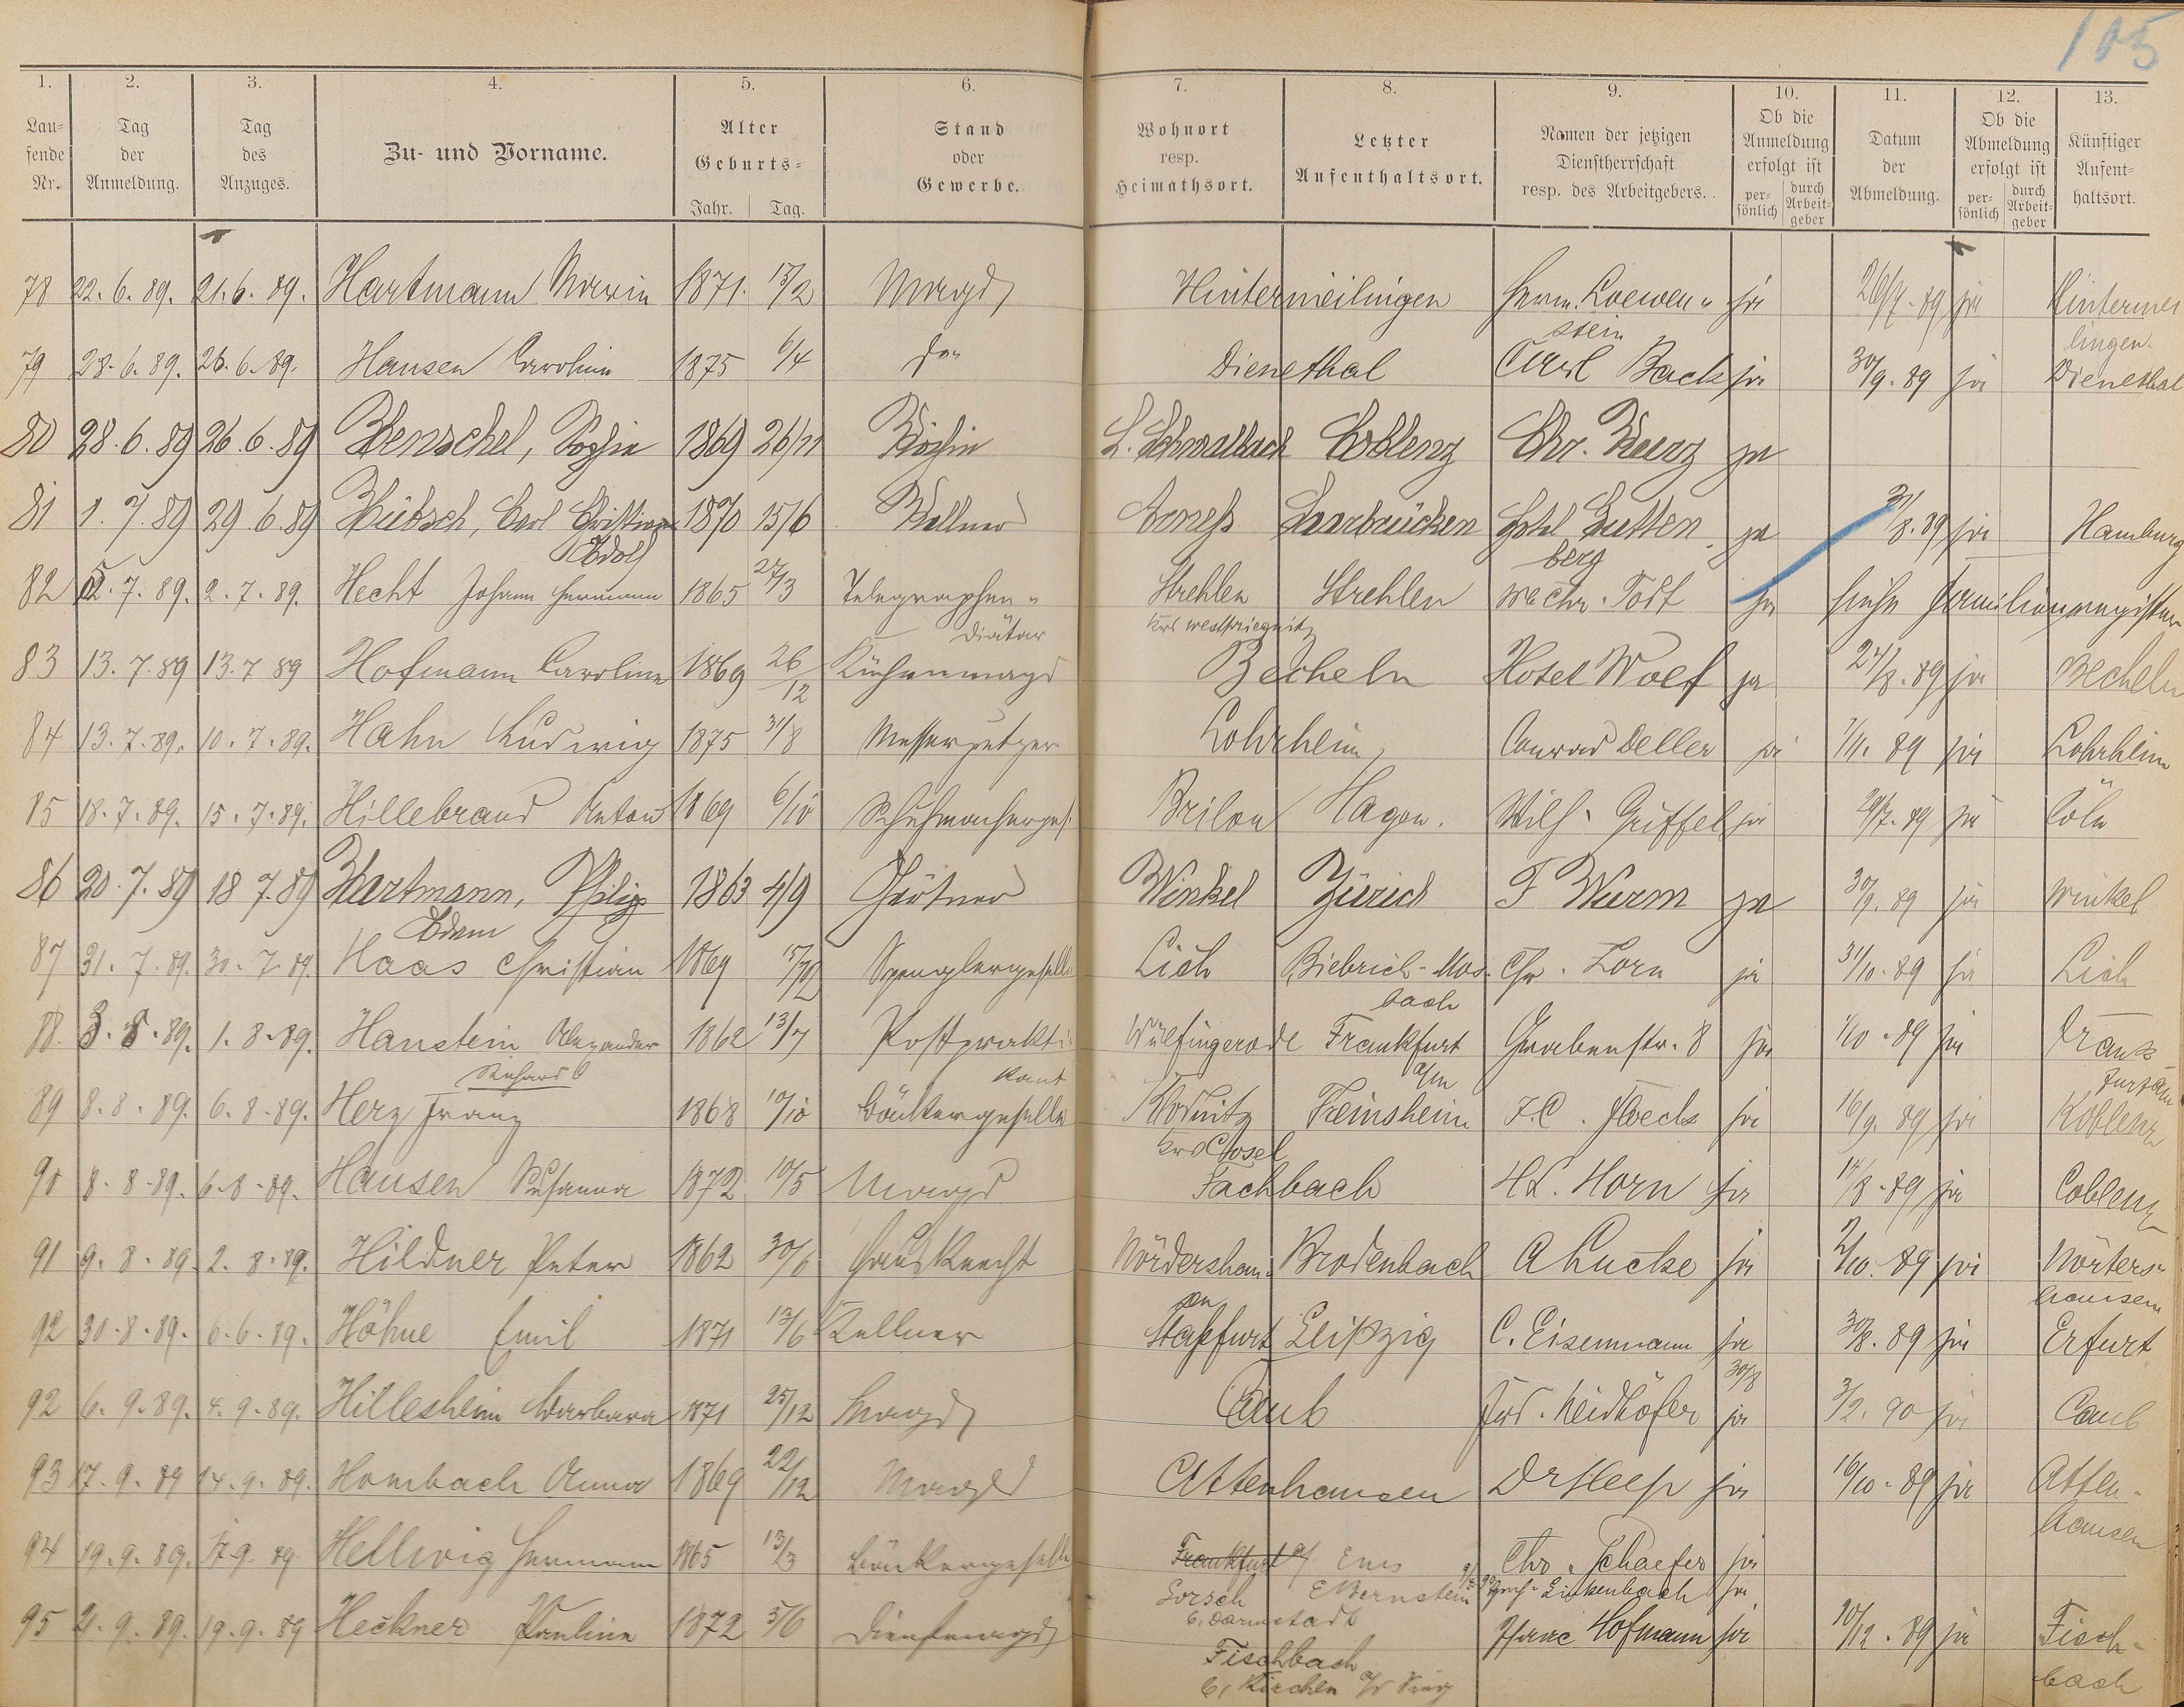 105
1. 2. 3. 4. 5. 6. 7. 8. 9. 10. 11. 12. 13.
Lau=
fende
Nr.
Tag
der
Anmeldung.
Tag
des
Anzuges.
Zu- und Vorname.
Alter
Geburts=
Jahr. Tag.
Stand
oder
Gewerbe.
Wohnort
resp.
Heimathsort.
Letzter
Aufenthaltsort.
Namen der jetzigen
Dienstherrschaft
resp. des Arbeitgebers.
Ob die
Anmeldung
erfolgt ist
per-
sönlich
durch
Arbeit-
geber
Datum
der
Abmeldung.
Ob die
Abmeldung
erfolgt ist
per-
sönlich
durch
Arbeit-
geber
Künftiger
Aufent=
haltsort.
78 22. 6. 89. 21. 6. 89. Hartmann Maria 1871. 15/2 Magd Hintermeilingen Herm. Loewen- ja 26/7. 89 ja Hintermei
stein lingen.
79 28. 6. 89. 26. 6. 89. Hansen Carolina 1875 6/4 do Dienethal Carl Back ja 30/9. 89 ja Dienethal
80 28. 6. 89 26. 6. 89 Henschel, Sophie 1869 26/11 Köchin L. Schwalbach Coblenz Chr. Kurz ja
81 1. 7. 89 29. 6. 89 Hübsch, Carl Christian 1870 15/6 Kellner Saarbrücken Hotel Gutten ja 31/8. 89 ja Hamburg
Adolf berg
82 2. 7. 89. 2. 7. 89. Hecht Johann Hermann 1865 27/3 Telegraphen- Strehlen Strehlen Wechr. Todt ja siehe Familienregister
Diätar Krs Westpriegnitz
83 13. 7. 89 13. 7 89 Hofmann Caroline 1869 26/12 Küchenmagd Becheln Hotel Wolf ja 27/8. 89 ja Becheln
84 13. 7. 89. 10. 7. 89. Hahn Ludwig 1875 31/8 Messerputzer Lohrheim Conrad Deller ja 7/11. 89 ja Lohrheim
85 18. 7. 89. 15. 7. 89. Hillebrand Anton 1869 6/10 Schuhmacherges. Brilon Hagen. Wilh. Griffel ja 29/7. 89 ja Cöln
86 20. 7. 89 18 7. 89 Hartmann, Philipp 1863 4/9 Gärtner Winkel Zürich F Wurm ja 30/9. 89 ja Winkel
Adam
87 31. 7. 89. 30. 7. 89. Haas Christian 1869 Spenglergeselle Lich Biebrich-Mos- Chr. Zorn ja 31/10. 89 ja Lich
bach
88. 3. 8. 89. 1. 8. 89. Hanstein Alexander 1862 13/7 Postprakti- Wülfingerode Frankfurt Grabenstr. 8 ja 1/10. 89 ja
Richard kant a/m
89 8. 8. 89. 6. 8. 89. Herz Franz 1868 10/10 Bäckergeselle Klodnitz Freinsheim J. C. Flöcks ja 16/9. 89 ja Koblenz
Krs Cosel
90 8. 8. 89. 6. 8. 89. Hausen Susanna 1872 10/5 Magd Fachbach Hd. Horn ja 14/8. 89 ja Coblenz
91 9. 8. 89. 2. 8. 89. Hildner Peter 1862 30/6 Hausknecht Nördershau- Brodenbach A Lucke ja 2/10. 89 ja Nörters-
sn hausen
92 30. 8. 89. 6. 6. 89. Höhne Emil 1871 13/6 Kellner Staßfurt Leipzig C. Eisenmann ja 30/8. 89 ja Erfurt
30/8
92 6. 9. 89. 4. 9. 89. Hillesheim Barbara 1871 25/12 Magd Caub Frd. Neidhöfer ja 3/2. 90 ja Caub
93 17. 9. 89 14. 9. 89. Hombach Anna 1869 22/12 Magd Attenhausen Dr Reep ja 16/10. 89 ja Atten-
hausen
94 19. 9. 89. 17. 9. 89 Hellwig Hermann 1865 13/3 Bäckergeselle Frankfurt a/ Ems Chr. Schaefer ja
Lorsch E Bernstein Linkenbach ja
b. Darmstadt
95 21. 9. 89. 19. 9. 89 Heckner Paulina 1872 5/6 Dienstmagd Pfarrer Hofmann ja 10/12. 89 ja Fisch-
Fischbach bach
b. Kirchen